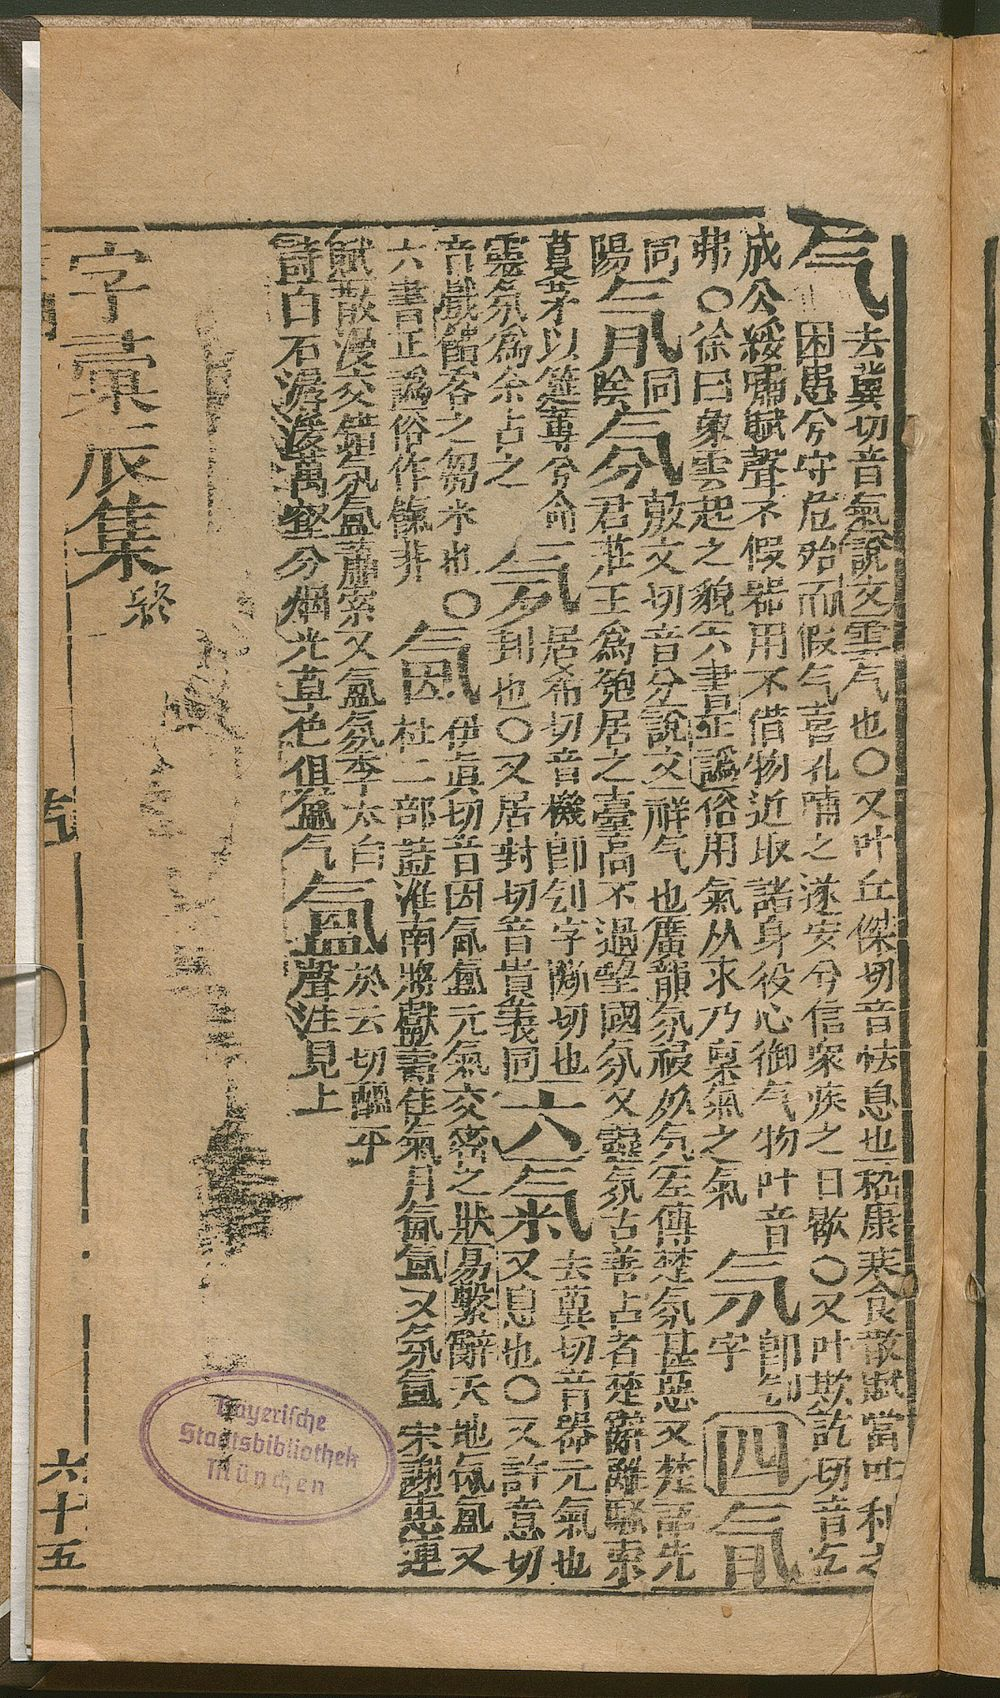 气去冀切音氣說文雲气也○又叶丘傑切音怯息也嵇康寒食散賦當吐利之
困患兮守危殆而假气喜孔哺之遂安兮信衆疾之日歇○又叶欺訖切音乞
成公綏嘯賦聲不假器用不借物近取諸身役心御气物叶音
弗○徐曰象雲起之貌六書正譌俗用氣从米乃稟氣之氣
即刉字
四氜同陽
同陰
氛敷文切音分說文祥气也廣韻氛祲妖气左傳楚氛甚惡又楚語先
君莊王為匏居之臺高不過望國氛又靈氛古善占者楚辭離騷索
藑茅以筳篿兮命
靈氛為余占之
居希切音機即刉字斷切也
刲也○又居對切音貴義同
六氣去冀切音器元氣也
又息也○又許意切
音戲餼客之芻米也○
六書正譌俗作餼非
氤伊眞切音因氤氳元氣交密之狀易繫辭天地氤氳又
杜二部蓋淮南將獻壽佳氣月氤氳又氛氳宋謝惠連
賦散漫交錯氛氳蕭索又氳氛李太白
詩白石萬壑分烟光草色俱氳气
氳於云切醞平
聲注見上
字彙辰集終
气
六十五
Bayerische
Staatsbibliothek
München